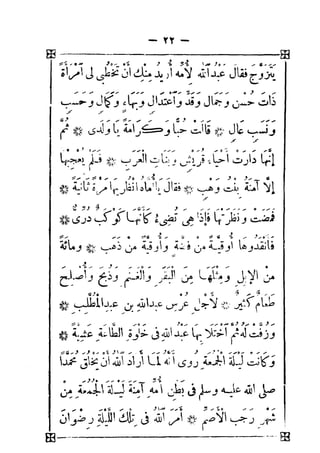 — ٢٢ —
يَتَزَوَّجَ فقال عَبْدُ الله لِأُمِّهِ أُرِيدُ مِنْكِ أَنْ تَخْطُبِي لِي امْرَأَةً
ذَاتَ حُسْنٍ وَجَمَالٍ وَقَدٍّ وَاعْتِدَالٍ وَبَهَاءٍ وَكَمَالٍ وَحَسَبٍ
وَنَسَبٍ عَالٍ * قَالَتْ حُبًّا وَكَرَامَةً يَا وَلَدِي * ثُمَّ
إِنَّهَا دَارَتْ أَحْيَاءَ قُرَيْشٍ وَبَنَاتِ الْعَرَبِ * فَلَمْ يُعْجِبْهَا
إِلَّا آمِنَةُ بِنْتُ وَهْبٍ * فقال يَا أُمَّاهُ انْظُرِيهَا مَرَّةً ثَانِيَةً *
فَمَضَتْ وَنَظَرَتْهَا فَإِذَا هِيَ تُضِيءُ كَأَنَّهَا كَوْكَبٌ دُرِّيٌّ *
فَأَنْقَدُوهَا أُوقِيَّةً مِنْ فِضَّةٍ وَأُوقِيَّةً مِنْ ذَهَبٍ * وَمِائَةً
مِنَ الْإِبِلِ وَمِثْلَهَا مِنَ الْبَقَرِ وَالْغَنَمِ وَذُبِحَ وَأُصْلِحَ
طَعَامٌ كَثِيرٌ * لِأَجْلِ عُرْسِ عبد الله بن عبد المُطَّلِبِ *
وَزُفَّتْ لَهُ ثُمَّ اخْتَلَا بِهَا عَبْدُ الله فِي خَلْوَةِ الطَّاعَةِ عَشِيَّةَ *
وَكَانَتْ لَيْلَةَ الْجُمْعَةِ رُوِيَ أَنَّهُ لَمَّا أَرَادَ اللهُ أَنْ يَخْلُقَ مُحَمَّدًا
صلى الله عليه وسلم فى بَطْنِ أُمِّهِ آمِنَةَ لَيْلَةَ الْجُمْعَةِ مِنْ
شَهْرِ رَجَبِ الْأَصَمِّ * أَمَرَ اللهُ فِي تِلْكَ اللَّيْلَةِ رِضْوَانَ